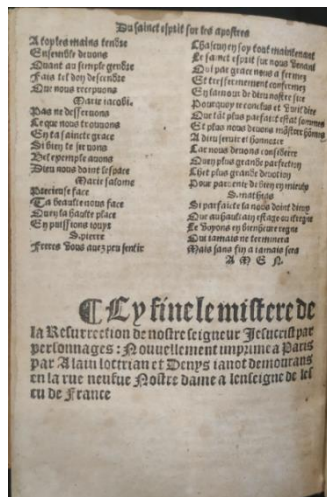 Du sainct esprit sur les apostres
A toy les mains tendre
Ensemble devons
Quant au simple gendre
Fais tel don descendre
Que nous recevons
Marie iacobi.
Pas ne desservons
Ce que nous trouvons
En ta saincte grace
Si bien te servons
Bel exemple avons
Dieu nous doint lespace
Marie salome
Precieuse face
Ta beaulte nous face
Quen ta haulte place
En puissions iouyr
S. pierre
Freres vous avez peu sentir
Chascun en soy tout maintenant
Le sainct esprit sur nous venant
Qui par grace nous a fermez
Et tresfermement confermez
En lamour de dieu nostre sire
Pourquoy ie conclus et vueil dire
Que tāt plus parfaict est sommes
Et plus nous devons
A dieu servir et honnorer
Car nous devons considerer
Quen plus grande perfection
Chiet plus grande devotion
Pour parvenir de bien en mieulx
S. mathias
Si parfaicte la nous doint dieux
Que au hault
Le voyons en bienheure regne
Qui iamais ne terminera
Mais sans fin a iamais sera
A M E N.
¶ Cy fine le mistere de
la Resurrection de nostre seigneur Jesucrist par
personnages: Nouvellement imprime a Paris
par Alain lottrian et Denys ianot demourans
en la rue neufve Nostre dame a lenseigne de les
cu de France